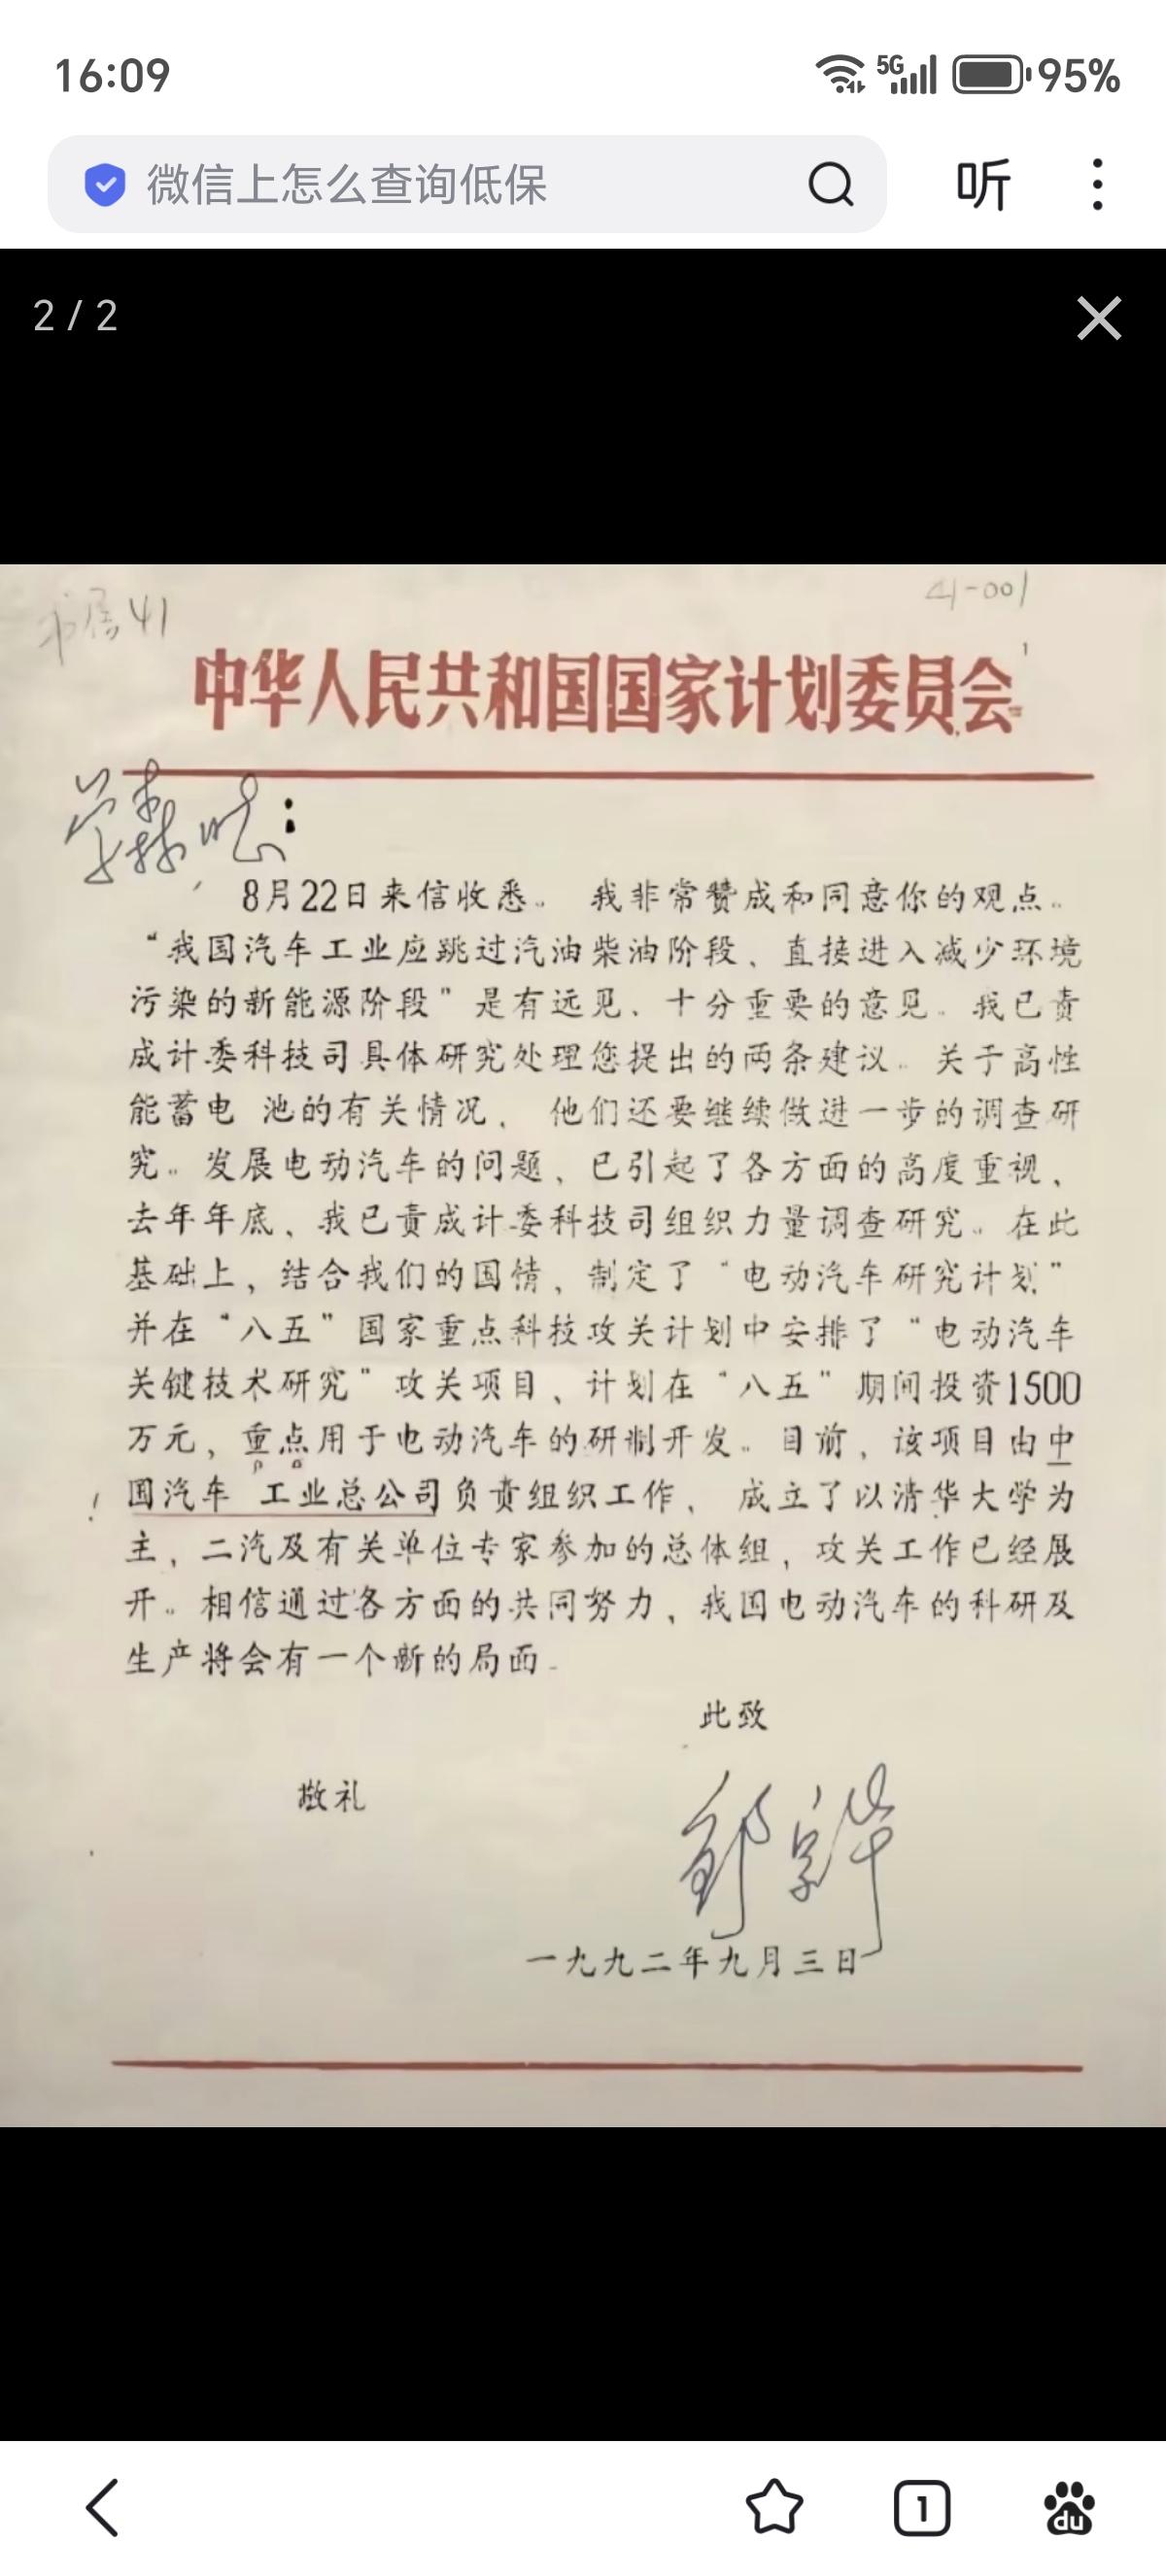 16:09
5G
95%
微信上怎么查询低保
听
2 / 2
书房41
41-001
1
中华人民共和国国家计划委员会
学森兄：
8月22日来信收悉。我非常赞成和同意你的观点。
“我国汽车工业应跳过汽油柴油阶段、直接进入减少环境
污染的新能源阶段”是有远见、十分重要的意见。我已责
成计委科技司具体研究处理您提出的两条建议。关于高性
能蓄电 池的有关情况，他们还要继续做进一步的调查研
究。发展电动汽车的问题，已引起了各方面的高度重视，
去年年底，我已责成计委科技司组织力量调查研究。在此
基础上，结合我们的国情，制定了“电动汽车研究计划”
并在“八五”国家重点科技攻关计划中安排了“电动汽车
关键技术研究”攻关项目、计划在“八五”期间投资1500
万元，重点用于电动汽车的研制开发。目前，该项目由中
国汽车 工业总公司负责组织工作、成立了以清华大学为
主，二汽及有关单位专家参加的总体组，攻关工作已经展
开。相信通过各方面的共同努力，我国电动汽车的科研及
生产将会有一个新的局面。
此致
敬礼
邹家华
一九九二年九月三日
1
du